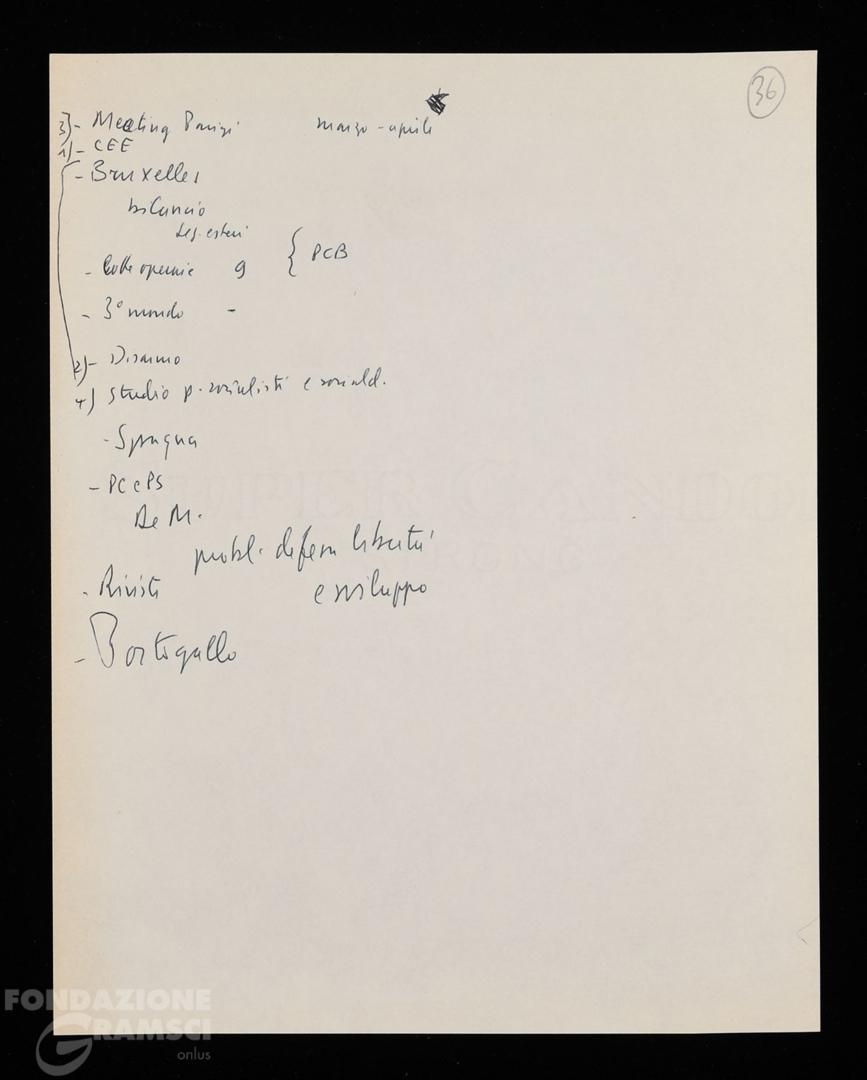 36
3)- Meeting Parigi marzo-aprile
1)- CEE
- Bruxelles
bilancio
seg. esteri
- lotte operaie 9 { PCB
- 3° mondo -
2)- Disarmo
4) Studio p. socialisti e sociald.
- Spagna
- PC e PS
De M.
probl. difesa libertà
- Riviste e sviluppo
- Portogallo
SUPER CONDOR
STRONG
FONDAZIONE
GRAMSCI
onlus